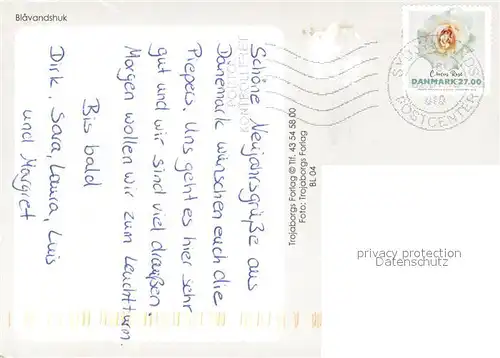 Blåvandshuk
Schöne Neujahrsgrüße aus
Dänemark wünschen euch die
Piepers. Uns geht es hier sehr
gut und wir sind viel draußen.
Morgen wollen wir zum Leuchtturm.
Bis bald
Dirk, Sara, Laura, Luis
und Margret
Trojaborgs Forlag © Tlf. 43 54 58 00
Foto: Trojaborgs Forlag
BL 04
DANMARK 27.00
POSTCENTER
privacy protection
Datenschutz